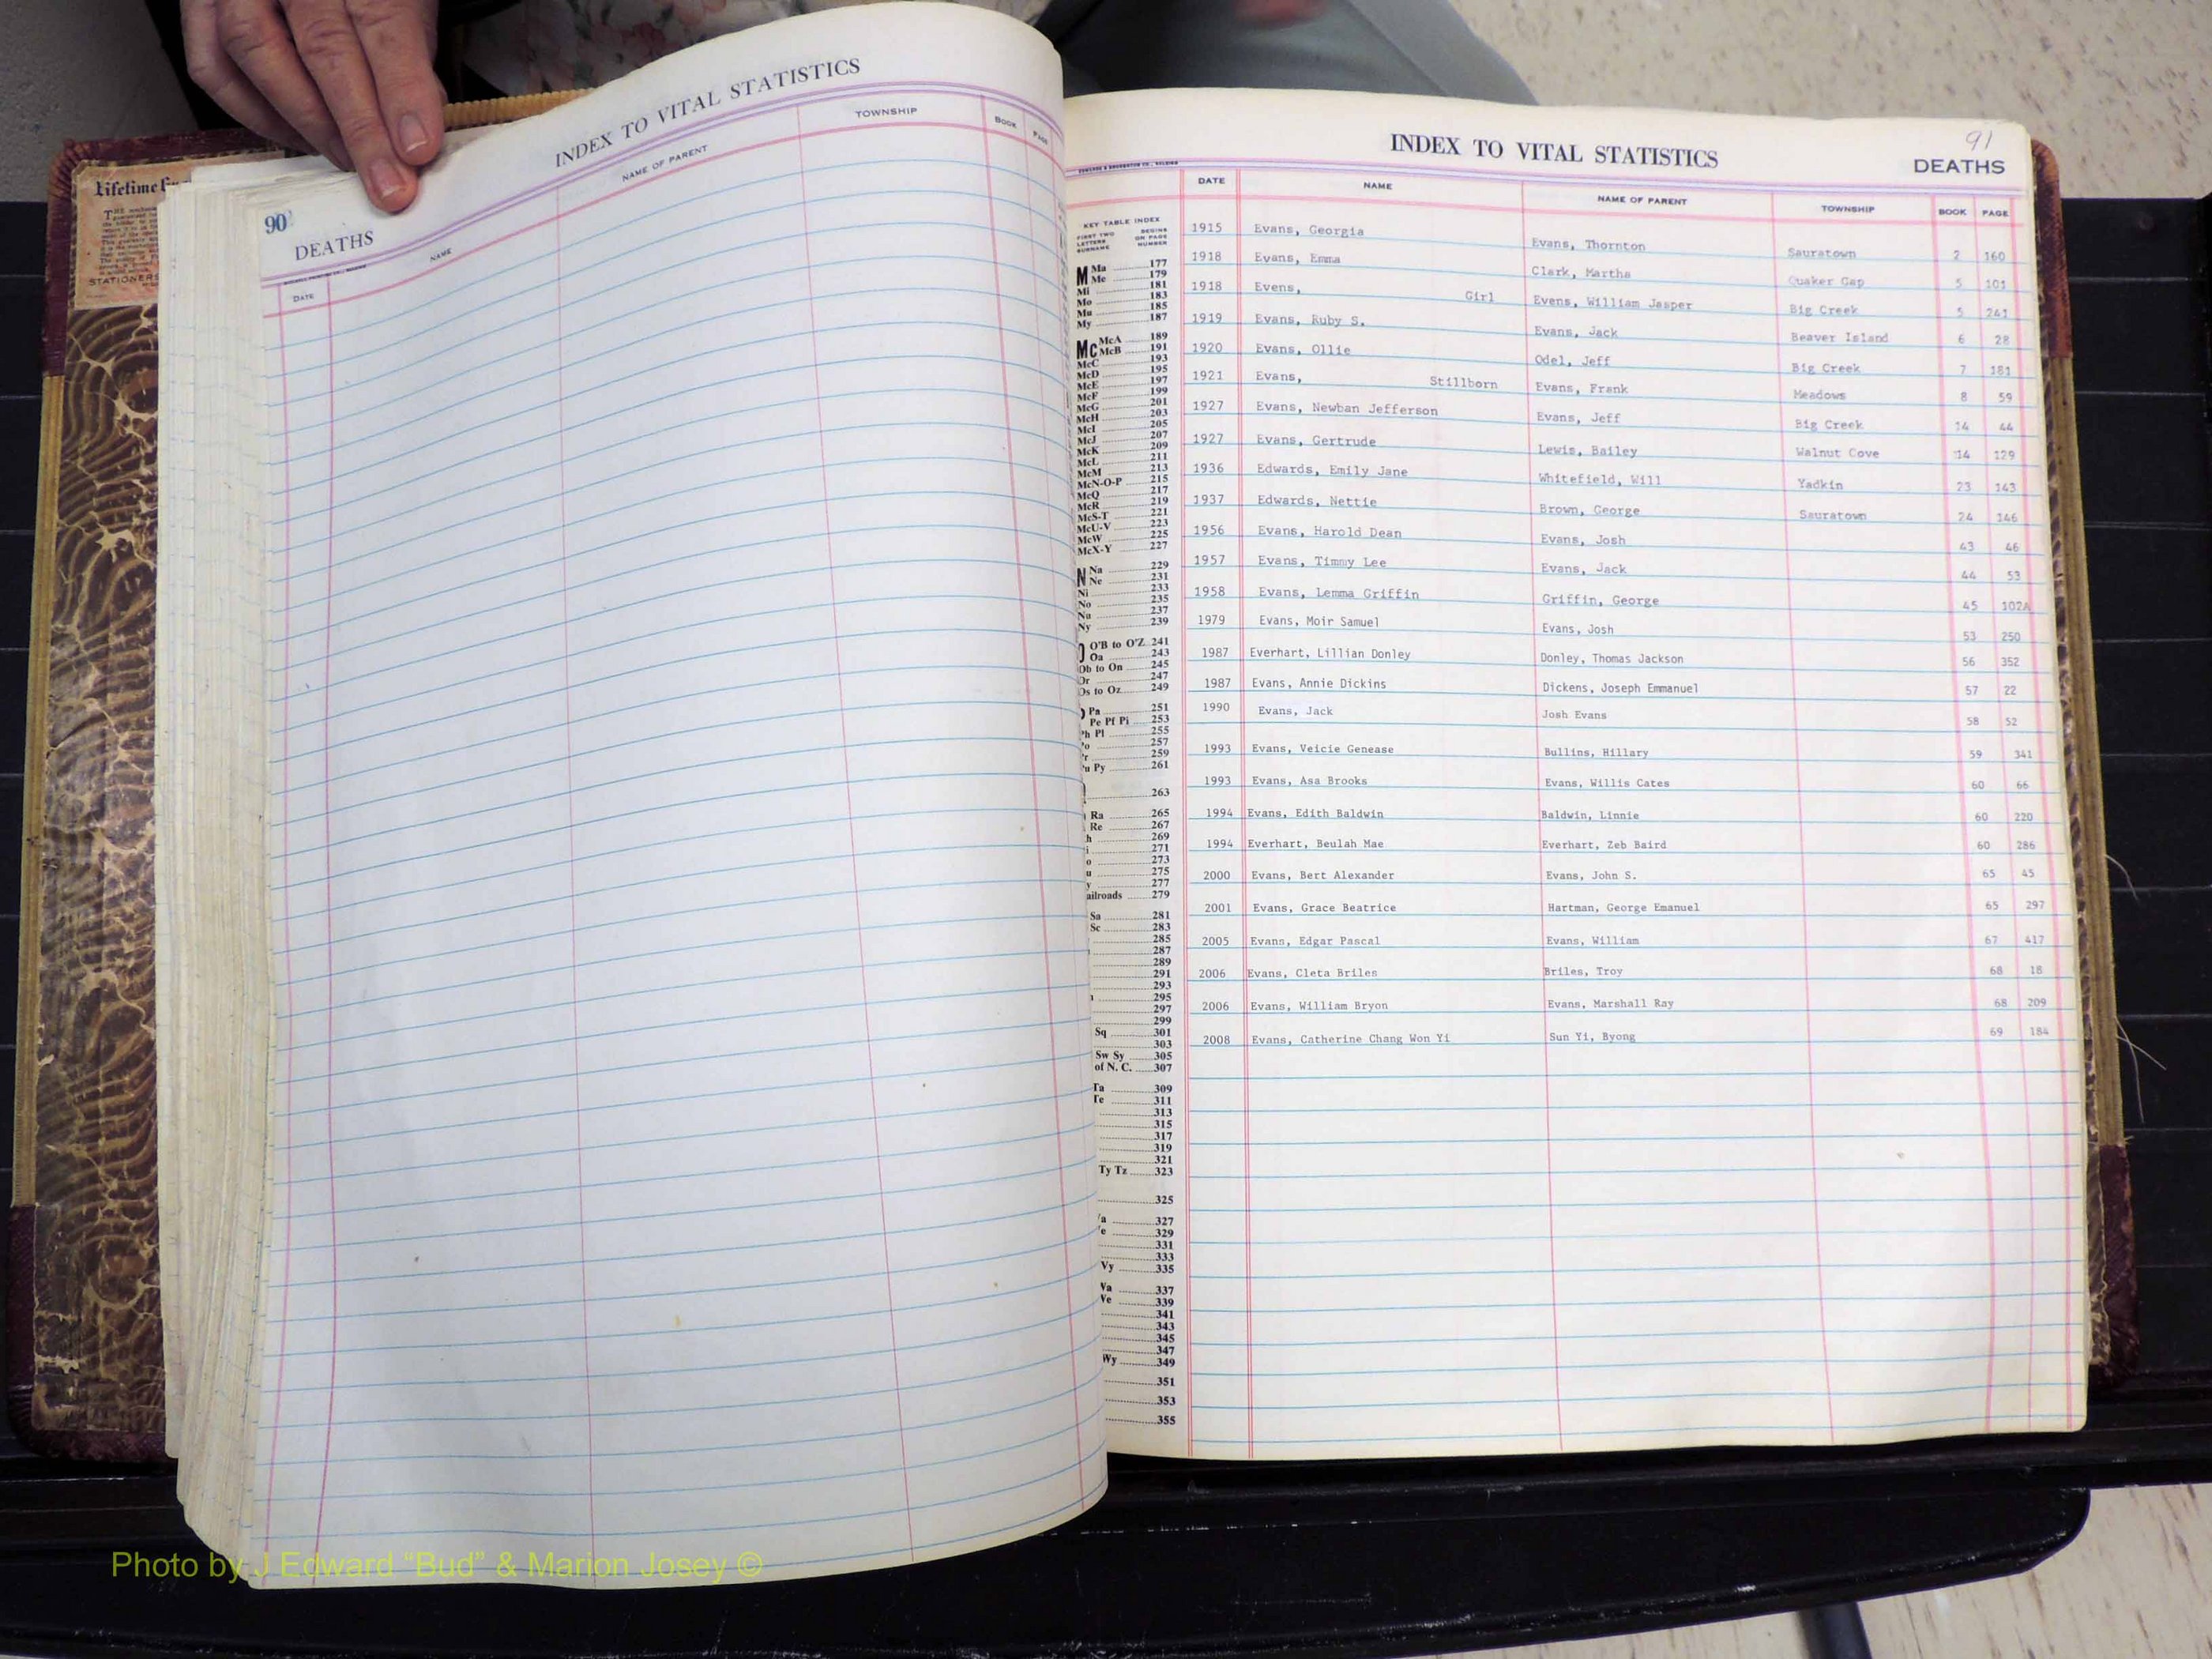 Lifetime
STATIONERS
90
DEATHS
INDEX TO VITAL STATISTICS
DATE NAME NAME OF PARENT TOWNSHIP BOOK PAGE
91
INDEX TO VITAL STATISTICS
DEATHS
DATE NAME NAME OF PARENT TOWNSHIP BOOK PAGE
1915 Evans, Georgia Evans, Thornton Sauratown 2 160
1918 Evans, Emma Clark, Martha Quaker Gap 5 101
1918 Evens, Girl Evens, William Jasper Big Creek 5 241
1919 Evans, Ruby S. Evans, Jack Beaver Island 6 28
1920 Evans, Ollie Odel, Jeff Big Creek 7 181
1921 Evans, Stillborn Evans, Frank Meadows 8 59
1927 Evans, Newban Jefferson Evans, Jeff Big Creek 14 44
1927 Evans, Gertrude Lewis, Bailey Walnut Cove 14 129
1936 Edwards, Emily Jane Whitefield, Will Yadkin 23 143
1937 Edwards, Nettie Brown, George Sauratown 24 146
1956 Evans, Harold Dean Evans, Josh 43 46
1957 Evans, Timmy Lee Evans, Jack 44 53
1958 Evans, Lemma Griffin Griffin, George 45 102A
1979 Evans, Moir Samuel Evans, Josh 53 250
1987 Everhart, Lillian Donley Donley, Thomas Jackson 56 352
1987 Evans, Annie Dickins Dickens, Joseph Emmanuel 57 22
1990 Evans, Jack Josh Evans 58 52
1993 Evans, Veicie Genease Bullins, Hillary 59 341
1993 Evans, Asa Brooks Evans, Willis Cates 60 66
1994 Evans, Edith Baldwin Baldwin, Linnie 60 220
1994 Everhart, Beulah Mae Everhart, Zeb Baird 60 286
2000 Evans, Bert Alexander Evans, John S. 65 45
2001 Evans, Grace Beatrice Hartman, George Emanuel 65 297
2005 Evans, Edgar Pascal Evans, William 67 417
2006 Evans, Cleta Briles Briles, Troy 68 18
2006 Evans, William Bryon Evans, Marshall Ray 68 209
2008 Evans, Catherine Chang Won Yi Sun Yi, Byong 69 184
KEY TABLE INDEX
FIRST TWO LETTERS SURNAME BEGINS ON PAGE NUMBER
M Ma 177
Me 179
Mi 181
Mo 183
Mu 185
My 187
Mc McA 189
McB 191
McC 193
McD 195
McE 197
McF 199
McG 201
McH 203
McI 205
McJ 207
McK 209
McL 211
McM 213
McN-O-P 215
McQ 217
McR 219
McS-T 221
McU-V 223
McW 225
McX-Y 227
N Na 229
Ne 231
Ni 233
No 235
Nu 237
Ny 239
O'B to O'Z 241
Oa 243
Ob to On 245
Or 247
Os to Oz 249
Pa 251
Pe Pf Pi 253
Ph Pl 255
257
259
Py 261
263
Ra 265
Re 267
269
271
273
275
277
ailroads 279
Sa 281
Sc 283
285
287
289
291
293
295
297
299
Sq 301
303
Sw Sy 305
of N. C. 307
Ta 309
Te 311
313
315
317
319
321
Ty Tz 323
325
327
329
331
333
Vy 335
337
339
341
343
345
347
Wy 349
351
353
355
Photo by J Edward “Bud” & Marion Josey ©